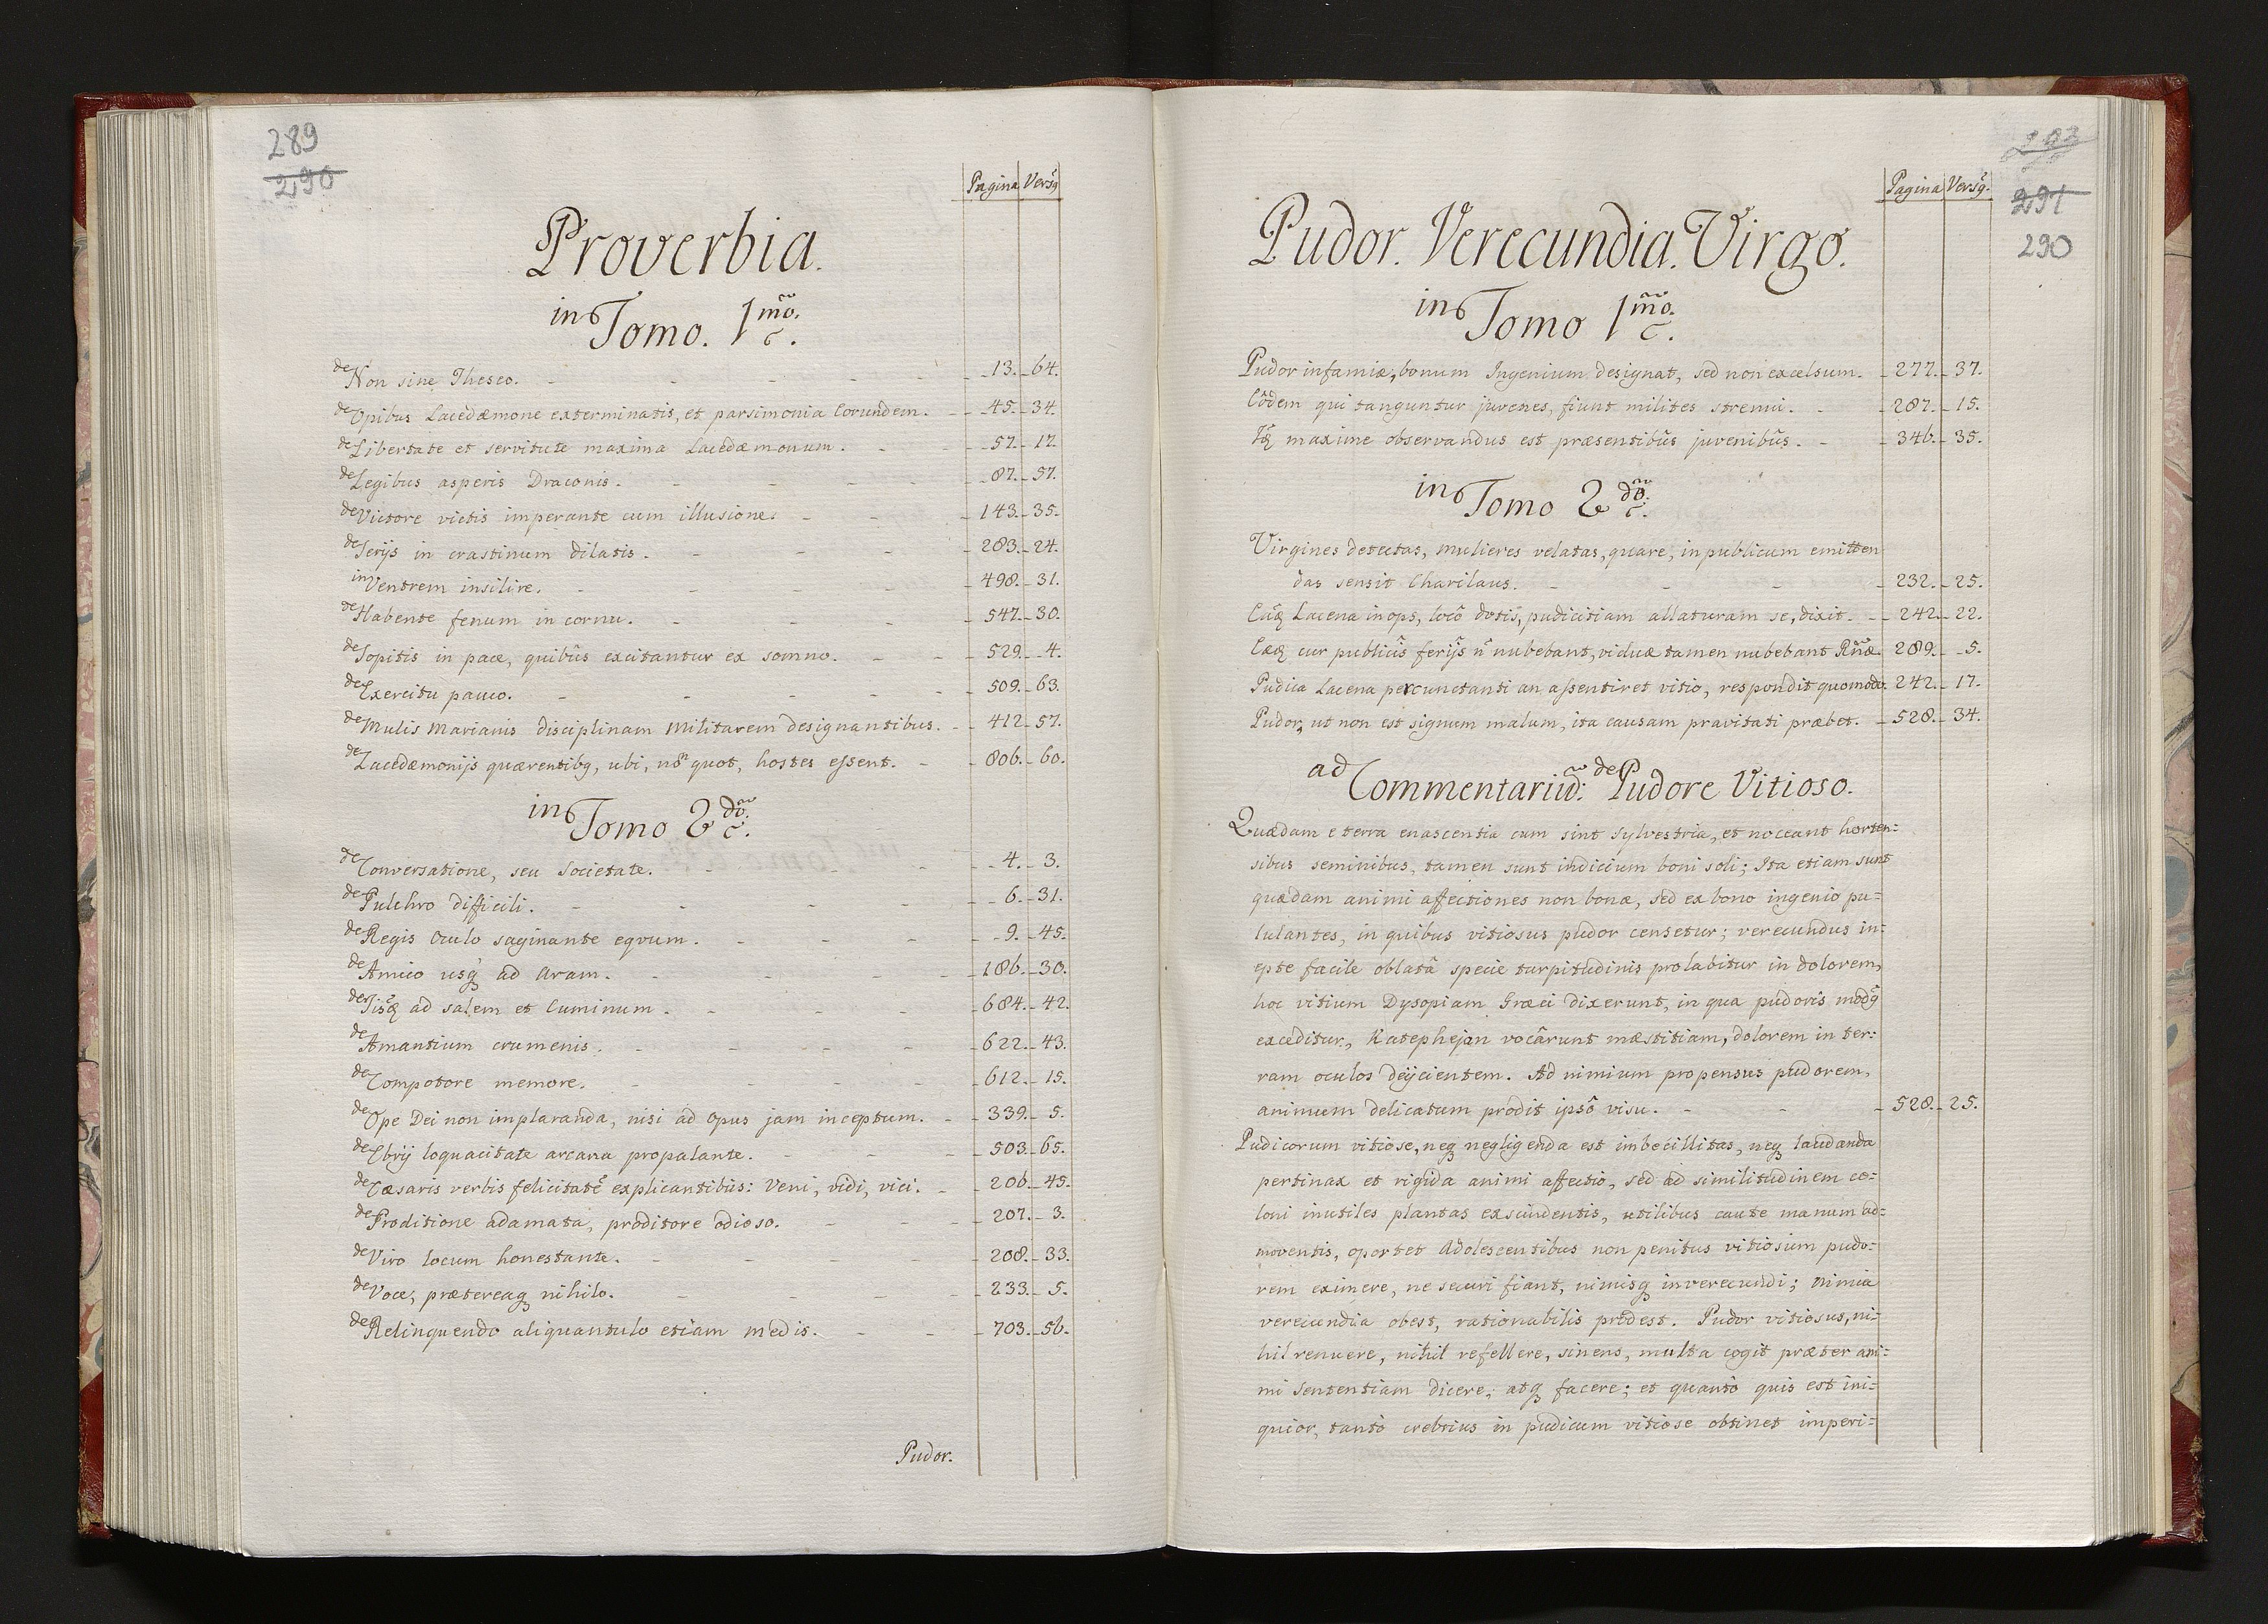 289
290
Pagina Versq
Proverbia.
in Tomo. 1mo.
de Non sine Theseo. 13. 64.
de Opibus Lacedæmone exterminatis, et parsimonia Eorundem. 45. 34.
de Libertate et servitute maxima Lacedæmonum. 57. 17.
de Legibus asperis Draconis. 87. 57.
de Victore victis imperante cum illusione. 143. 35.
de Serijs in crastinum dilatis. 283. 24.
in Ventrem insilire. 498. 31.
de Habente fenum in cornu. 547. 30.
de Sopitis in pace, quibûs excitantur ex somno. 529. 4.
de Exercitu pauco. 509. 63.
de Mulis Marianis disciplinam Militarem designantibus. 412. 57.
de Lacedæmonijs quærentibq, ubi, nõ quot, hostes essent. 806. 60.
in Tomo 2do.
de Conversatione, seu Societate. 4. 3.
de Pulchro difficili. 6. 31.
de Regis Oculo saginante eqvum. 9. 45.
de Amico usq ad Aram. 186. 30.
de Iisq ad salem et Cuminum. 684. 42.
de Amantium crumenis. 622. 43.
de Compotore memore. 612. 15.
de Ope Dei non implaranda, nisi ad Opus jam inceptum. 339. 5.
de Ebrij loquacitate arcana propalante. 503. 65.
de Cæsaris verbis felicitatẽ explicantibûs: Veni, vidi, vici. 206. 45.
de Proditione adamata, proditore odioso. 207. 3.
de Viro locum honestante. 208. 33.
de Voce, prætereaq nihilo. 233. 5.
de Relinquendo aliquantulo etiam Medis. 703. 56.
Pudor.
293
291
290
Pagina Versq.
Pudor. Verecundia. Virgo.
in Tomo 1mo.
Pudor infamiæ, bonum Ingenium designat, sed non excelsum. 277. 37.
Eôdem qui tanguntur juvenes, fiunt milites strenui. 287. 15.
Isq maxime observandus est præsentibûs juvenibûs. 346. 35.
in Tomo 2do.
Virgines detectas, mulieres velatas, quare, in publicum emitten
das sensit Charilaus. 232. 25.
Eâq Lacena inops, locô dotis, pudicitiam allaturam se, dixit. 242. 22.
Eæq cur publicîs ferijs ñ nubebant, viduæ tamen nubebant Rñæ. 289. 5.
Pudica Lacena percunctanti an assentiret vitio, respondit quomodo. 242. 17.
Pudor, ut non est signum malum, ita causam pravitati præbet. 528. 34.
ad Commentariũ: de Pudore Vitioso.
Quædam e terra enascentia cum sint sylvestria, et noceant horten=
sibus seminibus, tamen sunt indicium boni soli; Ita etiam sunt
quædam animi affectiones non bonæ, sed ex bono ingenio pu=
lulantes, in quibus vitiosus pudor censetur; verecundus in=
epte facile oblatâ specie turpitudinis prolabitur in dolorem,
hoc vitium Dysopiam Græci dixerunt, in qua pudoris modq
exceditur, Katephejan vocârunt mæstitiam, dolorem in ter=
ram oculos deijcientem. Ad nimium propensus pudorem,
animum delicatum prodit ipsô visu. 528. 25.
Pudicorum vitiose, neq negligenda est imbecillitas, neq laudanda
pertinax et rigida animi affectio, sed ad similitudinem co=
loni inutiles plantas exscindentis, utilibus caute manum ad=
moventis, oportet Adolescentibus non penitus vitiosum pudo=
rem eximere, ne securi fiant, nimisq inverecundi; nimia
verecundia obest, rationabilis prodest. Pudor vitiosus, ni=
hil renuere, nihil refellere, sinens, multa cogit præter ani=
mi Sententiam dicere, atq facere; et quantò quis est ini=
quior, tantò crebrius in pudicum vitiose obtinet imperi=